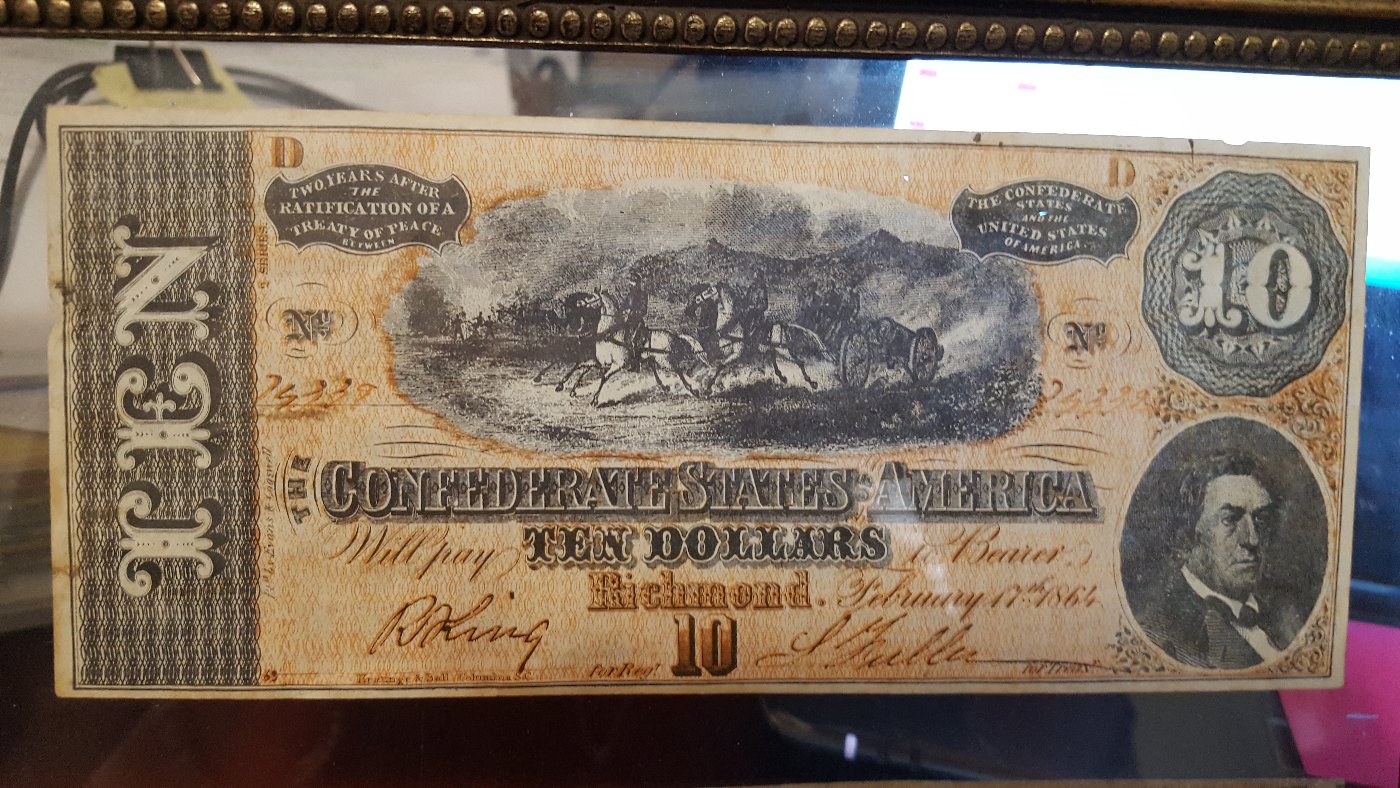 D
D
TWO YEARS AFTER
THE
RATIFICATION OF A
TREATY OF PEACE
BETWEEN
THE CONFEDERATE
STATES
AND THE
UNITED STATES
OF AMERICA
10
TEN
2 SERIES
No
No
THE
CONFEDERATE STATES OF AMERICA
Will pay TEN DOLLARS to Bearer
Richmond. February 17th 1864
10
For Regr.
For Treasr.
Keatinge & Ball, Columbia, S.C.